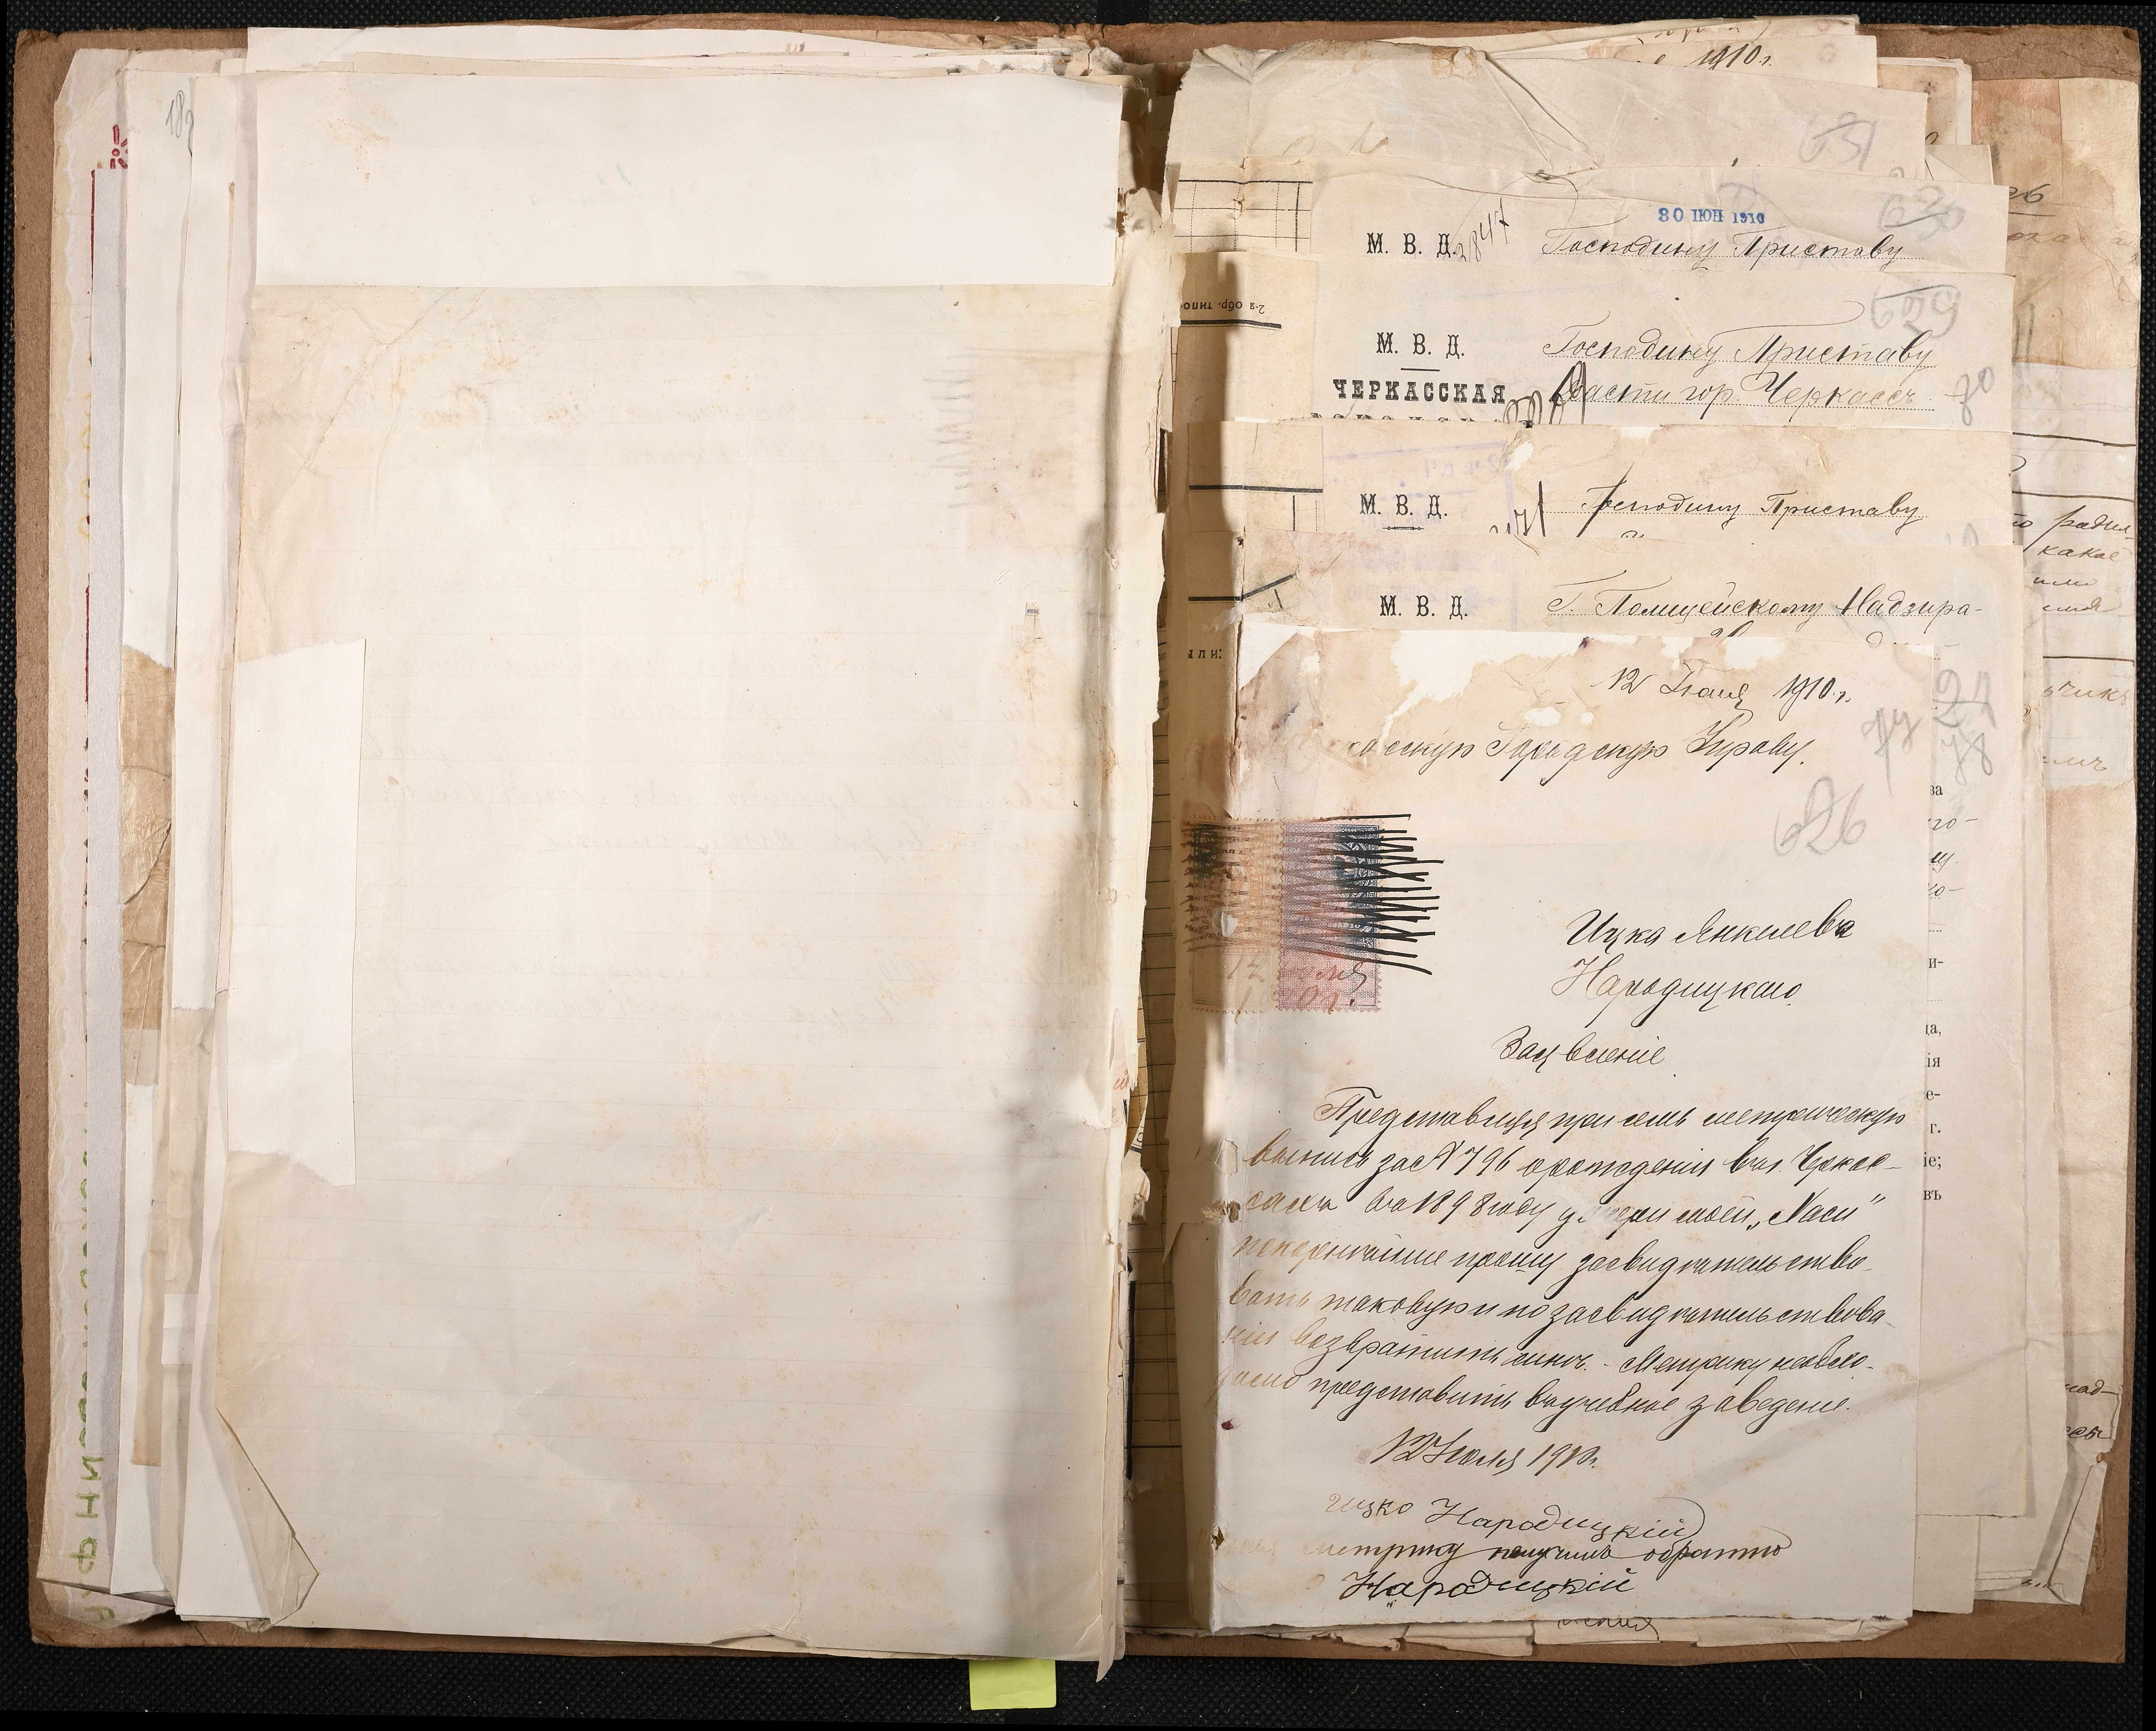 189
1910 г.
631
630
30 ІЮН 1910
М. В. Д.
2847
Господину Приставу
629
2-я обр. типо
М. В. Д.
Господину Приставу
ЧЕРКАССКАЯ
части гор. Черкассъ
80
М. В. Д.
Господину Приставу
М. В. Д.
Г. Полицейскому Надзира-
или:
12 Іюля 1910 г.
касскую Городскую Управу.
626
Ицка Янкелева
Народицкаго.
Заявленіе
Представляя при семъ метрическую
выпись за № 796 о рожденіи въ г. Черкас-
сахъ въ 1898 году дочери моей „Хаси"
покорнѣйше прошу засвидѣтельство-
вать таковую и по засвидѣтельствова-
ніи возвратить мнѣ. - Метрику необхо-
димо представить въ учебное заведеніе.
12 Іюля 1910 г.
Ицко Народицкій
метрику получилъ обратно
Народицкій